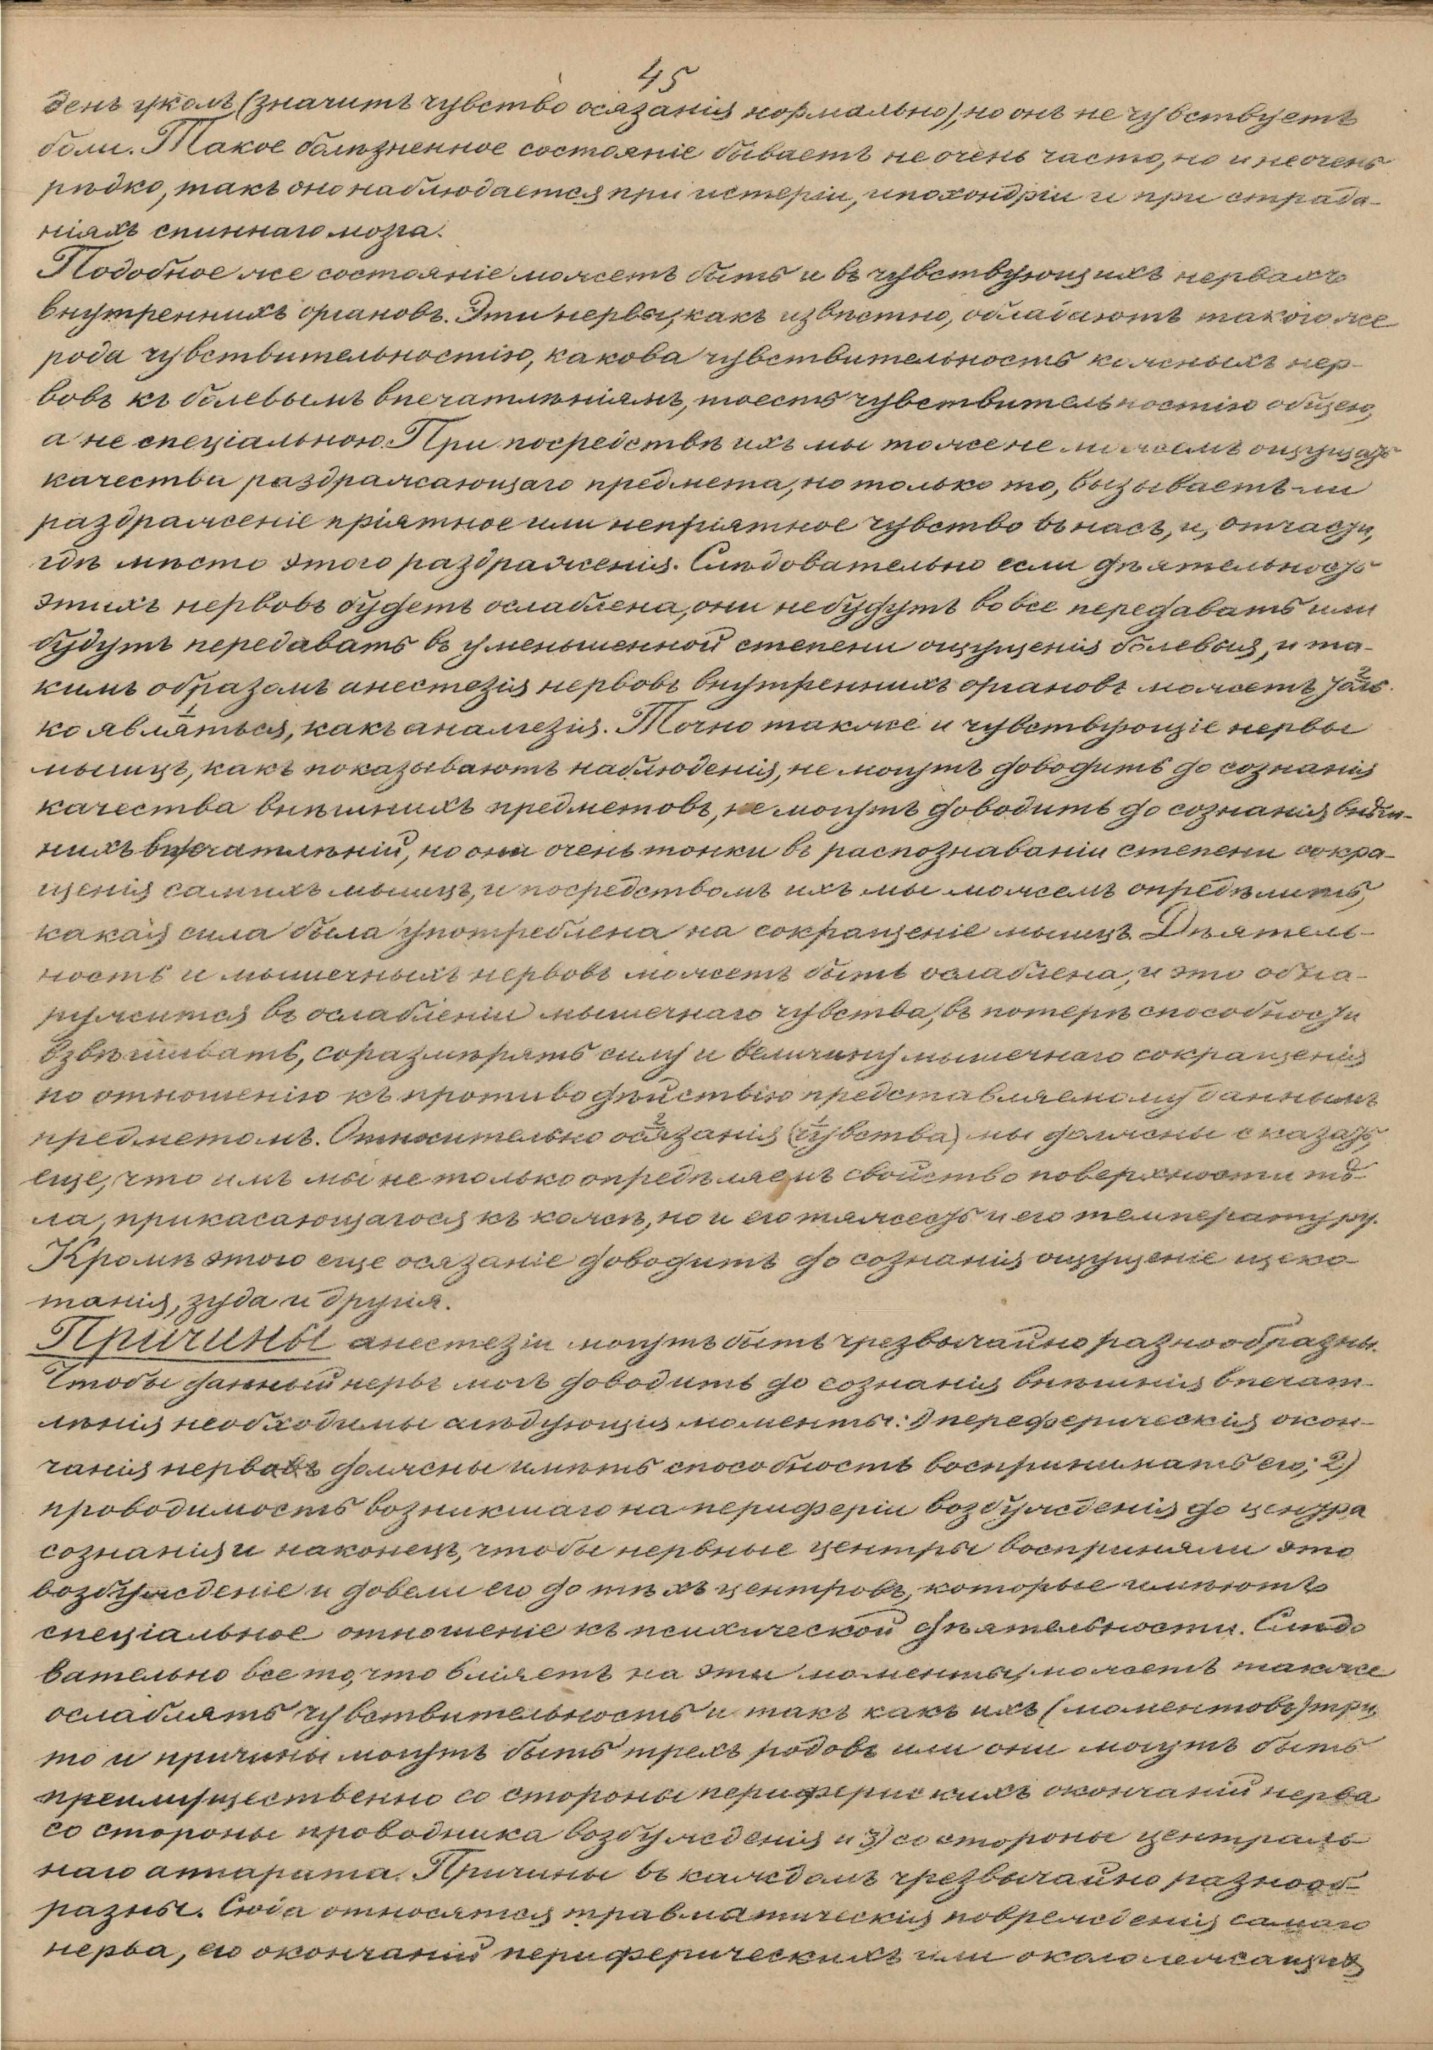 45
денъ уколъ (значитъ чувство осязанія нормально), но онъ не чувствуетъ
боли. Такое болѣзненное состояніе бываетъ не очень часто, но и не очень
рѣдко, такъ оно наблюдается при истеріи, ипохондріи и при страда-
ніяхъ спиннаго мозга.
Подобное же состояніе можетъ быть и въ чувствующихъ нервахъ
внутреннихъ органовъ. Эти нервы, какъ извѣстно, обладаютъ такого же
рода чувствительностію, какова чувствительность кожныхъ нер-
вовъ къ болевымъ впечатлѣніямъ, тоесть чувствительностію общею,
а не спеціальною. При посредствѣ ихъ мы тоже не можемъ ощущать
качества раздражающаго предмета, но только то, вызываетъ ли
раздраженіе пріятное или непріятное чувство въ насъ, и, отчасти,
гдѣ мѣсто этого раздраженія. Слѣдовательно если дѣятельность
этихъ нервовъ будетъ ослаблена, они не будутъ вовсе передавать или
будутъ передавать въ уменьшенной степени ощущенія болевыя, и та-
кимъ образомъ анестезія нервовъ внутреннихъ органовъ можетъ толь-
ко являться, какъ аналгезія. Точно также и чувствующіе нервы
мышцъ, какъ показываютъ наблюденія, не могутъ доводить до сознанія
качества внѣшнихъ предметовъ, не могутъ доводить до сознанія внѣш-
нихъ впечатлѣній, но они очень тонки въ распознаваніи степени сокра-
щенія самихъ мышцъ, и посредствомъ ихъ мы можемъ опредѣлить,
какая сила была употреблена на сокращеніе мышцъ. Дѣятель-
ность и мышечныхъ нервовъ можетъ быть ослаблена, и это обна-
ружится въ ослабленіи мышечнаго чувства, въ потерѣ способности
взвѣшивать, соразмѣрять силу и величину мышечнаго сокращенія
по отношенію къ противодѣйствію представляемому даннымъ
предметомъ. Относительно осязанія (чувства) мы должны сказать,
еще, что имъ мы не только опредѣляемъ свойство поверхности тѣ-
ла, прикасающагося къ кожѣ, но и его тяжесть и его температуру.
Кромѣ этого еще осязаніе доводитъ до сознанія ощущеніе щеко-
танія, зуда и другія.
Причины анестезіи могутъ быть чрезвычайно разнообразны.
Чтобы данный нервъ могъ доводить до сознанія внѣшнія впечат-
лѣнія необходимы слѣдующія моменты: 1) переферическія окон-
чанія нервовъ должны имѣть способность воспринимать его; 2)
проводимость возникшаго на периферіи возбужденія до центра
сознанія и наконецъ, чтобы нервные центры восприняли это
возбужденіе и довели его до тѣхъ центровъ, которые имѣютъ
спеціальное отношеніе къ психической дѣятельности. Слѣдо
вательно все то, что вліяетъ на эти моменты, можетъ также
ослаблять чувствительность и такъ какъ ихъ (моментовъ) три,
то и причины могутъ быть трехъ родовъ или они могутъ быть
преимущественно со стороны периферискихъ окончаній нерва
со стороны проводника возбужденія и 3) со стороны централь
наго аппарата. Причины въ каждомъ чрезвычайно разнооб-
разны. Сюда относятся травматическія поврежденія самаго
нерва, его окончаній периферическихъ или около лежащихъ